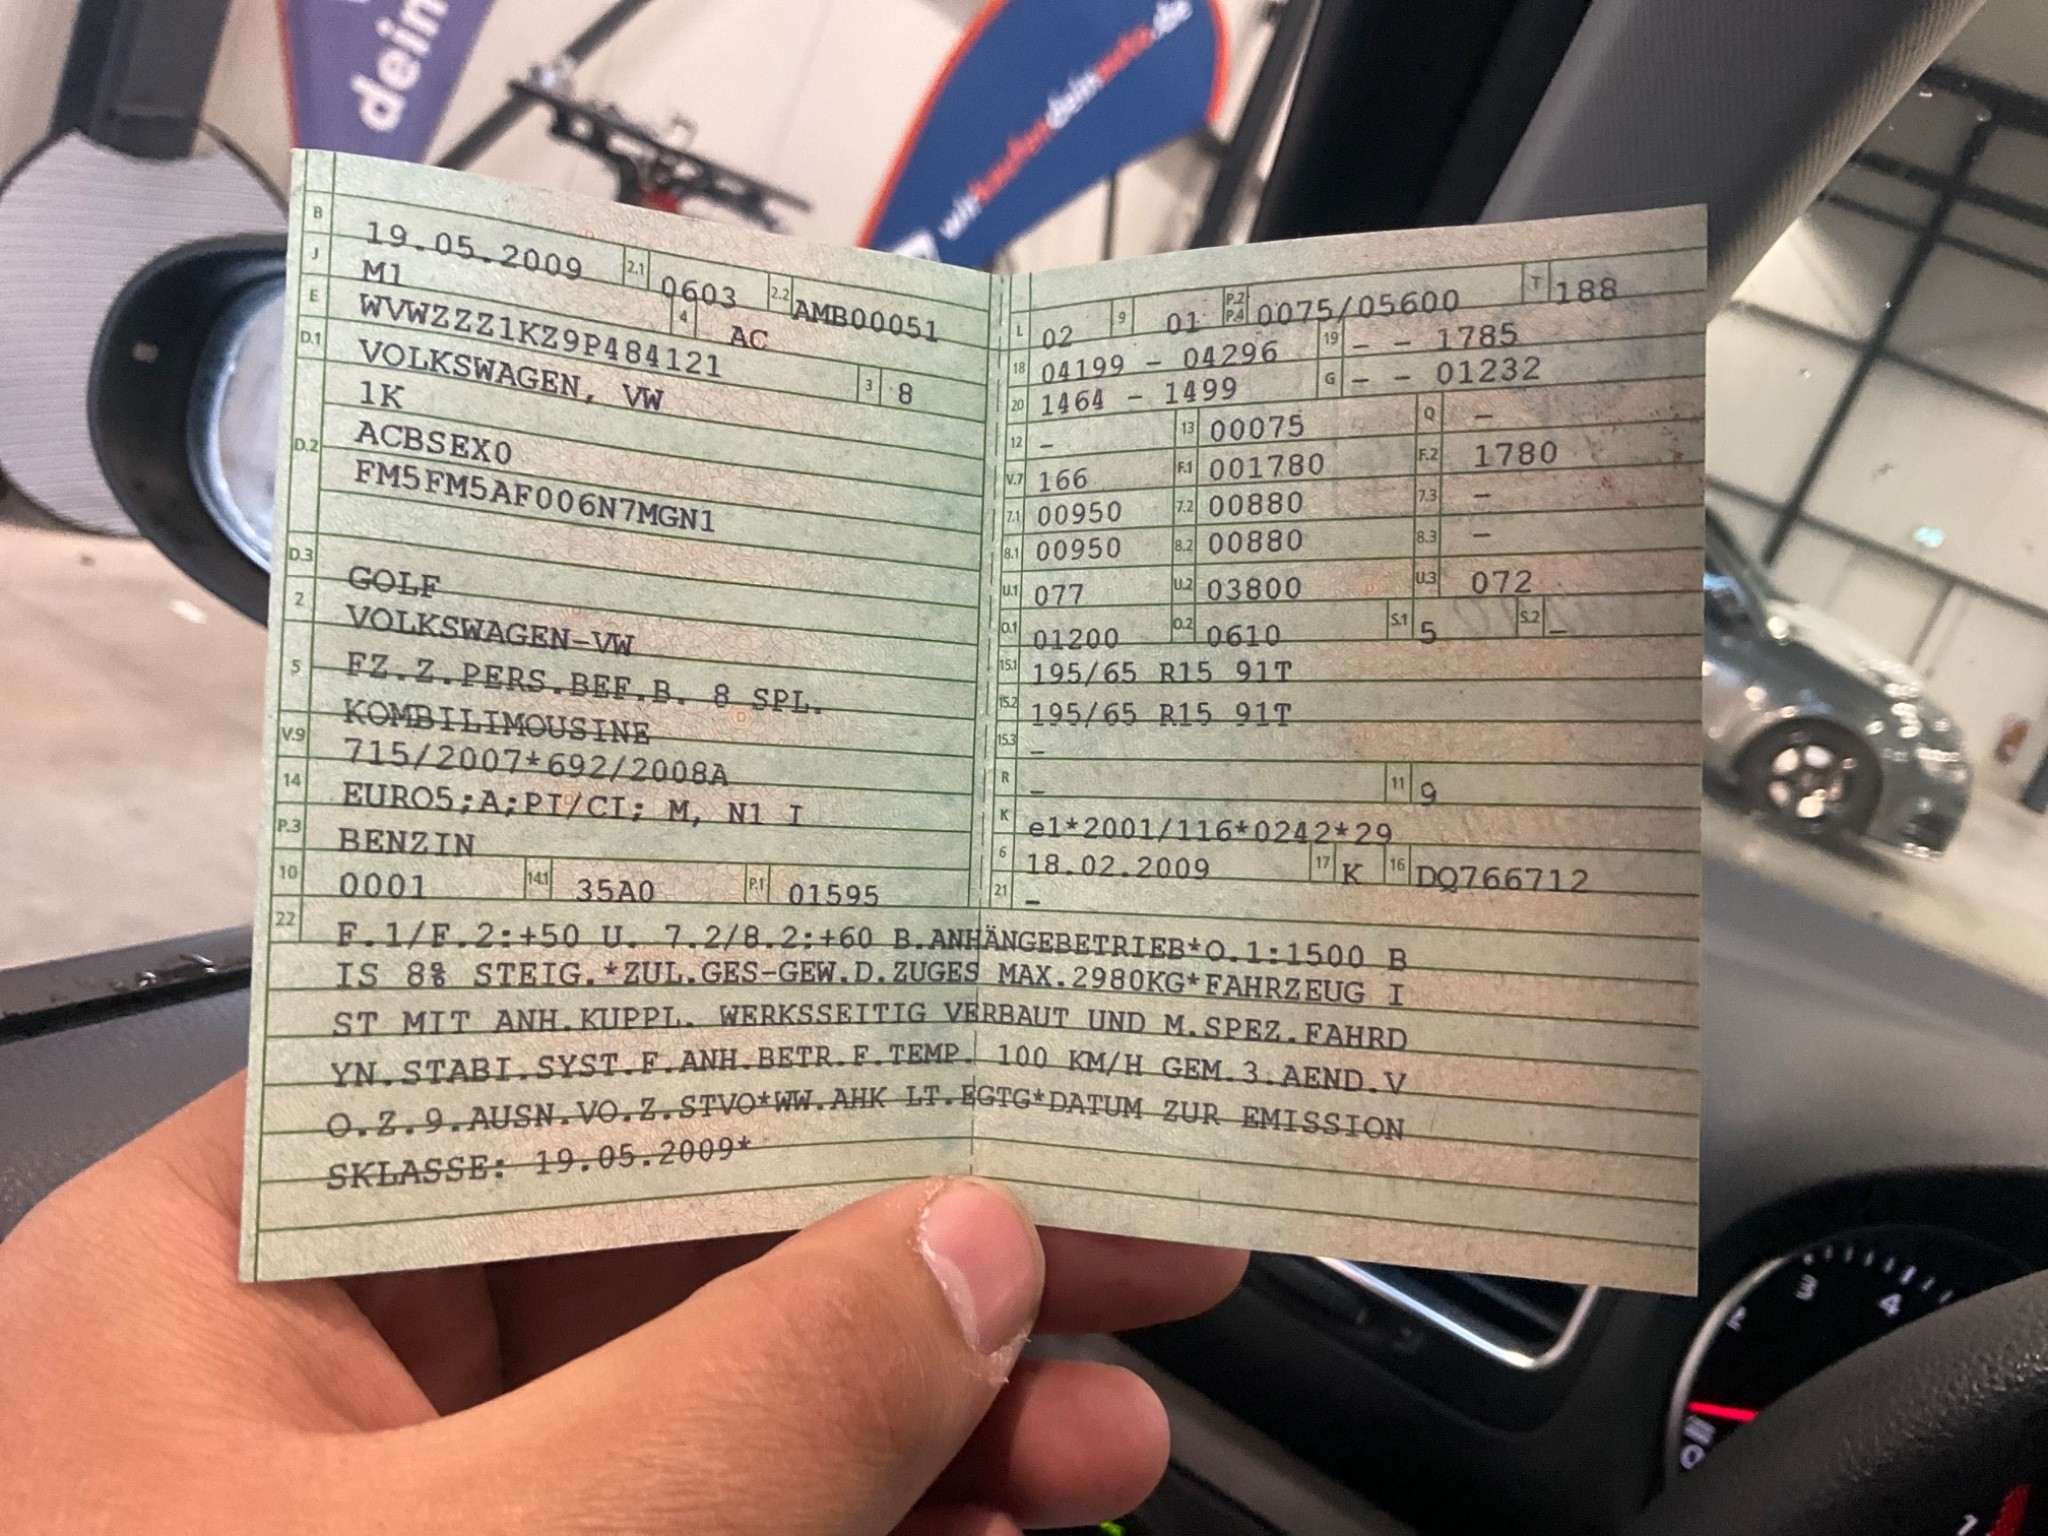 dein
wirkaufendeinauto.de
B 19.05.2009 2.1 0603 2.2 AMB00051
J M1 4 AC
E WVWZZZ1KZ9P484121 3 8
D.1 VOLKSWAGEN, VW
1K
D.2 ACBSEX0
FM5FM5AF006N7MGN1
D.3 GOLF
2 VOLKSWAGEN-VW
5 FZ.Z.PERS.BEF.B. 8 SPL.
KOMBILIMOUSINE
V.9 715/2007*692/2008A
14 EURO5;A;PI/CI; M, N1 I
P.3 BENZIN
10 0001 14.1 35A0 P.1 01595
L 02 9 01 P.2 P.4 0075/05600 T 188
18 04199 - 04296 19 - - 1785
20 1464 - 1499 G - - 01232
12 - 13 00075 Q -
V.7 166 F.1 001780 F.2 1780
7.1 00950 7.2 00880 7.3 -
8.1 00950 8.2 00880 8.3 -
U.1 077 U.2 03800 U.3 072
O.1 01200 O.2 0610 S.1 5 S.2 -
15.1 195/65 R15 91T
15.2 195/65 R15 91T
15.3 -
R - 11 9
K e1*2001/116*0242*29
6 18.02.2009 17 K 16 DQ766712
21 -
22 F.1/F.2:+50 U. 7.2/8.2:+60 B.ANHÄNGEBETRIEB*O.1:1500 B
IS 8% STEIG.*ZUL.GES-GEW.D.ZUGES MAX.2980KG*FAHRZEUG I
ST MIT ANH.KUPPL. WERKSSEITIG VERBAUT UND M.SPEZ.FAHRD
YN.STABI.SYST.F.ANH.BETR.F.TEMP. 100 KM/H GEM.3.AEND.V
O.Z.9.AUSN.VO.Z.STVO*WW.AHK LT.EGTG*DATUM ZUR EMISSION
SKLASSE: 19.05.2009*
2 3 4
1